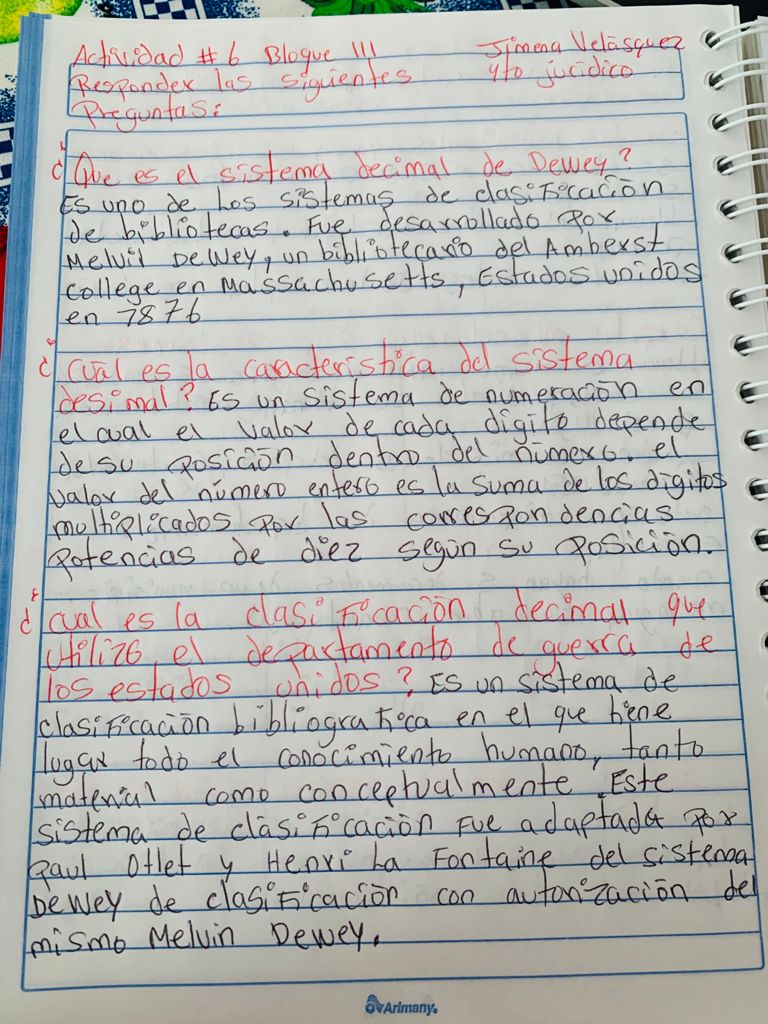 Actividad # 6 Bloque III Jimena Velásquez
Responder las siguientes 4to jurídico
Preguntas:
¿Que es el sistema decimal de Dewey?
Es uno de los sistemas de clasificación
de bibliotecas. Fue desarrollado por
Melvil Dewey, un bibliotecario del Amberst
college en Massachusetts, Estados unidos
en 1876
¿Cuál es la característica del sistema
desimal? Es un sistema de numeración en
el cual el valor de cada dígito depende
de su posición dentro del número. el
valor del número entero es la suma de los dígitos
multiplicados por las correspondencias
potencias de diez según su posición.
¿cual es la clasificación decimal que
utilizó el departamento de guerra de
los estados unidos? Es un sistema de
clasificación bibliografica en el que tiene
lugar todo el conocimiento humano, tanto
material como conceptualmente. Este
sistema de clasificación fue adaptada por
Paul Otlet y Henri La Fontaine del sistema
Dewey de clasificación con autorización del
mismo Melvin Dewey.
Arimany.